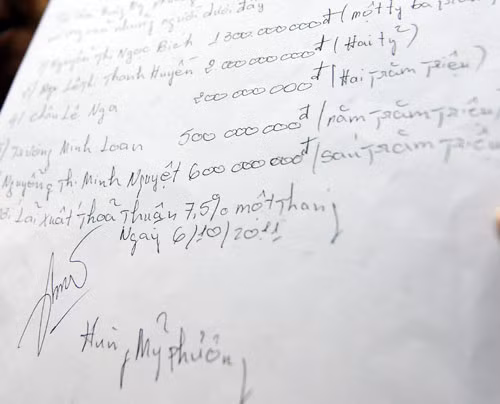 những người dưới đây
Nguyễn Thị Ngọc Bích 1 300 000 000đ (một tỷ ba trăm
Thanh Huyền 2 000 000 000đ (Hai tỷ)
Châu Lê Nga 200 000 000đ (Hai Trăm Triệu)
Trương Minh Loan 500 000 000đ (năm Trăm Triệu
Nguyễn Thị Minh Nguyệt 600 000 000đ (sáu Trăm Triệu
Lãi xuất Thỏa Thuận 7,5% một Tháng
Ngày 6/10/2011
Mỹ Phương